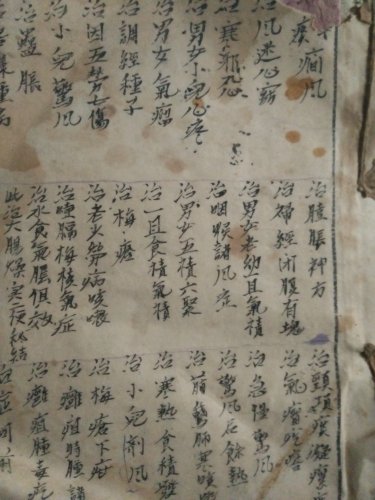 癇風
治風迷心竅
治寒邪
治男女小兒心疼
治男女氣
治調經種子
治因五勞七傷
治小兒驚風
治蠱脹
治膨脹神方
治婦經閉腹有塊
治男女老幼一旦氣積
治咽喉諸風症
治男女五積六聚
治一旦食積氣積
治梅瘡
治老少勞病咳嗽
治噎膈梅核氣症
治水食氣脹俱效
此治大腸燥寔便秘結
治頸項痰
治氣
治急慢驚風
治驚風后餘熱
治肺寒咳
治寒熱食積
治小兒臍風
治梅瘡下疳
治癰疽腫諸
治癰疽腫毒